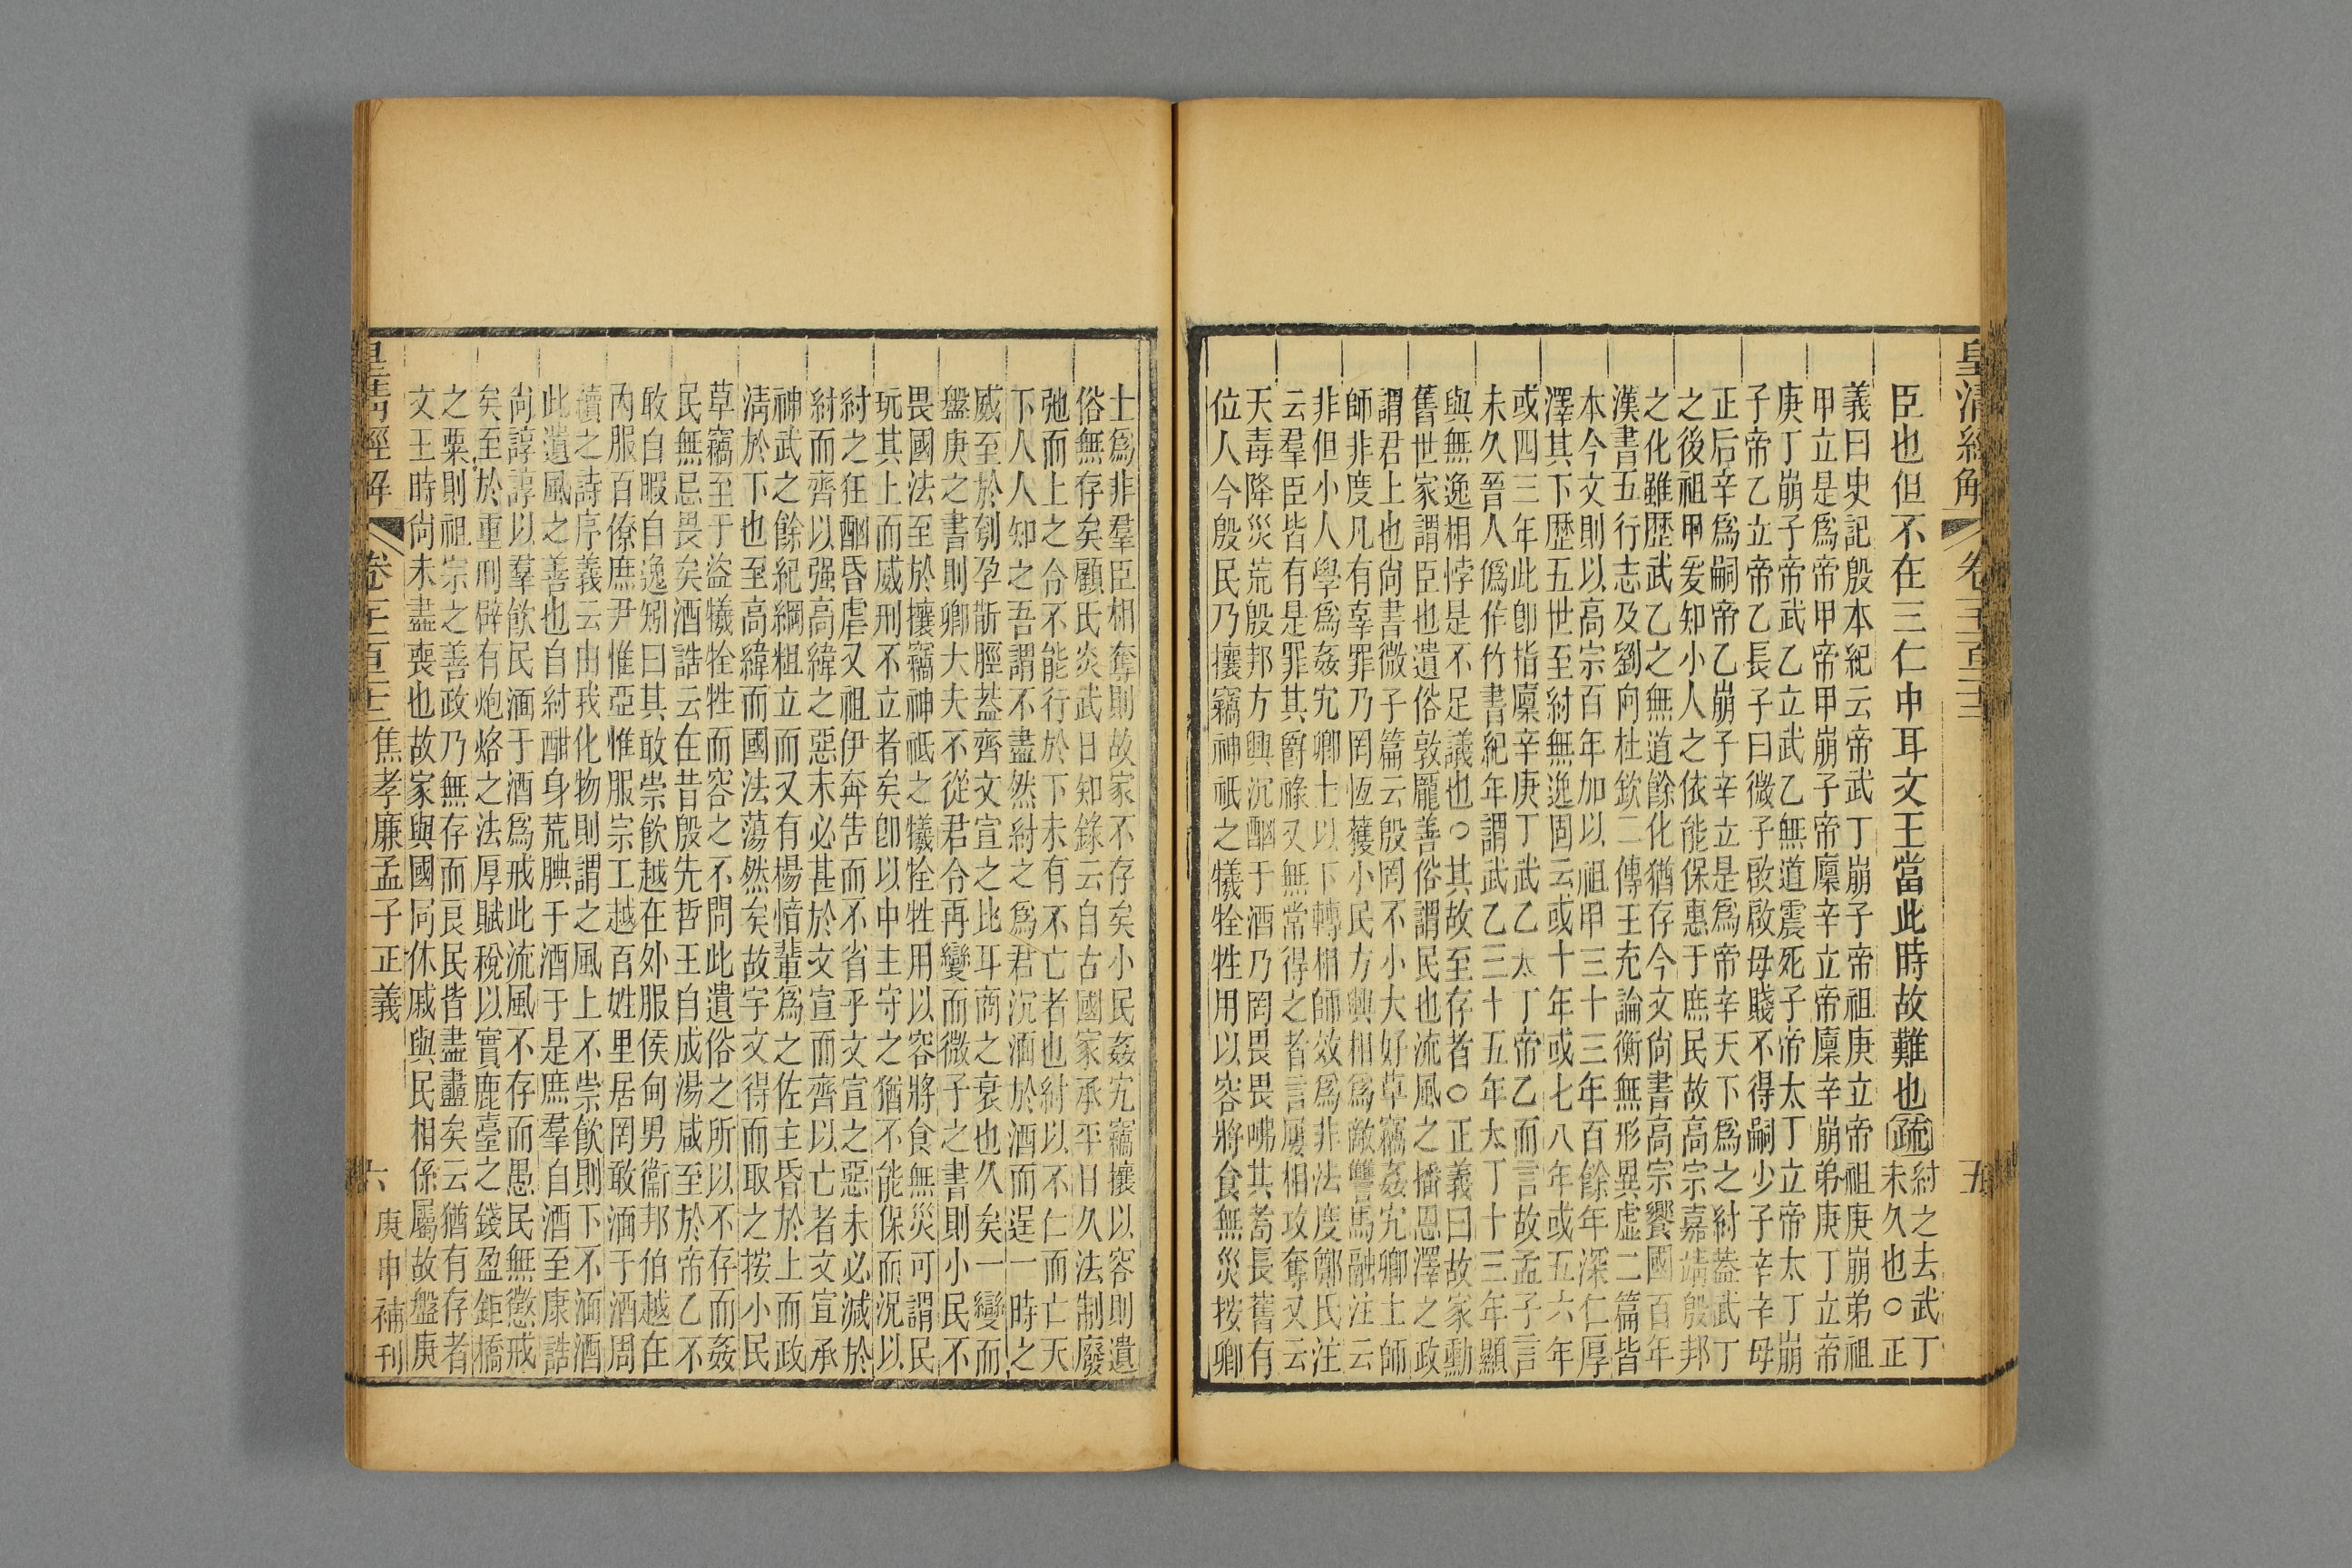 皇清經解
五
臣也但不在三仁中耳文王當此時故難也疏
紂之去武丁
未久也○正
義曰史記殷本紀云帝武丁崩子帝祖庚立帝祖庚崩弟祖
甲立是爲帝甲帝甲崩子帝廩辛立帝廩辛崩弟庚丁立帝
庚丁崩子帝武乙立武乙無道震死子帝太丁立帝太丁崩
子帝乙立帝乙長子曰微子啟啟母賤不得嗣少子辛辛母
正后辛爲嗣帝乙崩子辛立是爲帝辛天下爲之紂蓋武丁
之後祖甲爰知小人之依能保惠于庶民故高宗嘉靖殷邦
之化雖歷武乙之無道餘化猶存今文尚書高宗饗國百年
漢書五行志及劉向杜欽二傳王充論衡無形異虛二篇皆
本今文則以高宗百年加以祖甲三十三年百餘年深仁厚
澤其下歷五世至紂無逸固云或十年或七八年或五六年
或四三年此卽指廩辛庚丁武乙太丁帝乙而言故孟子言
未久晉人僞作竹書紀年謂武乙三十五年太丁十三年顯
與無逸相悖是不足議也○其故至存者○正義曰故家勳
舊世家謂臣也遺俗敦龐善俗謂民也流風之播恩澤之政
謂君上也尚書微子篇云殷罔不小大好草竊姦宄卿士師
師非度凡有辜罪乃罔恆獲小民方興相爲敵讐馬融注云
非但小人學爲姦宄卿士以下轉相師效爲非法度鄭氏注
云羣臣皆有是罪其爵祿又無常得之者言屢相攻奪又云
天毒降災荒殷邦方興沉酗于酒乃罔畏畏咈其耇長舊有
位人今殷民乃攘竊神祇之犧牷牲用以容將食無災按卿
士爲非羣臣相奪則故家不存矣小民姦宄竊攘以容則遺
俗無存矣顧氏炎武日知錄云自古國家承平日久法制廢
弛而上之令不能行於下未有不亡者也紂以不仁而亡天
下人人知之吾謂不盡然紂之爲君沉湎於酒而逞一時之
威至於刳孕斮脛蓋齊文宣之比耳商之衰也久矣一變而
盤庚之書則卿大夫不從君令再變而微子之書則小民不
畏國法至於攘竊神祇之犧牷牲用以容將食無災可謂民
玩其上而威刑不立者矣卽以中主守之猶不能保而況以
紂之狂酗昏虐又祖伊奔告而不省乎文宣之惡未必減於
紂而齊以强高緯之惡未必甚於文宣而齊以亡者文宣承
神武之餘紀綱粗立而又有楊愔輩爲之佐主昏於上而政
清於下也至高緯而國法蕩然矣故宇文得而取之按小民
草竊至于盜犧牷牲而容之不問此遺俗之所以不存而姦
民無忌畏矣酒誥云在昔殷先哲王自成湯咸至於帝乙不
敢自暇自逸矧曰其敢崇飮越在外服侯甸男衞邦伯越在
內服百僚庶尹惟亞惟服宗工越百姓里居罔敢湎于酒周
續之詩序義云由我化物則謂之風上不崇飮則下不湎酒
此遺風之善也自紂酣身荒腆于酒于是庶羣自酒至康誥
尚諄諄以羣飮民湎于酒爲戒此流風不存而愚民無懲戒
矣至於重刑辟有炮烙之法厚賦稅以實鹿臺之錢盈鉅橋
之粟則祖宗之善政乃無存而良民皆盡衋矣云猶有存者
文王時尚未盡喪也故家與國同休戚與民相係屬故盤庚
經解
焦孝廉孟子正義
六
庚申補刊